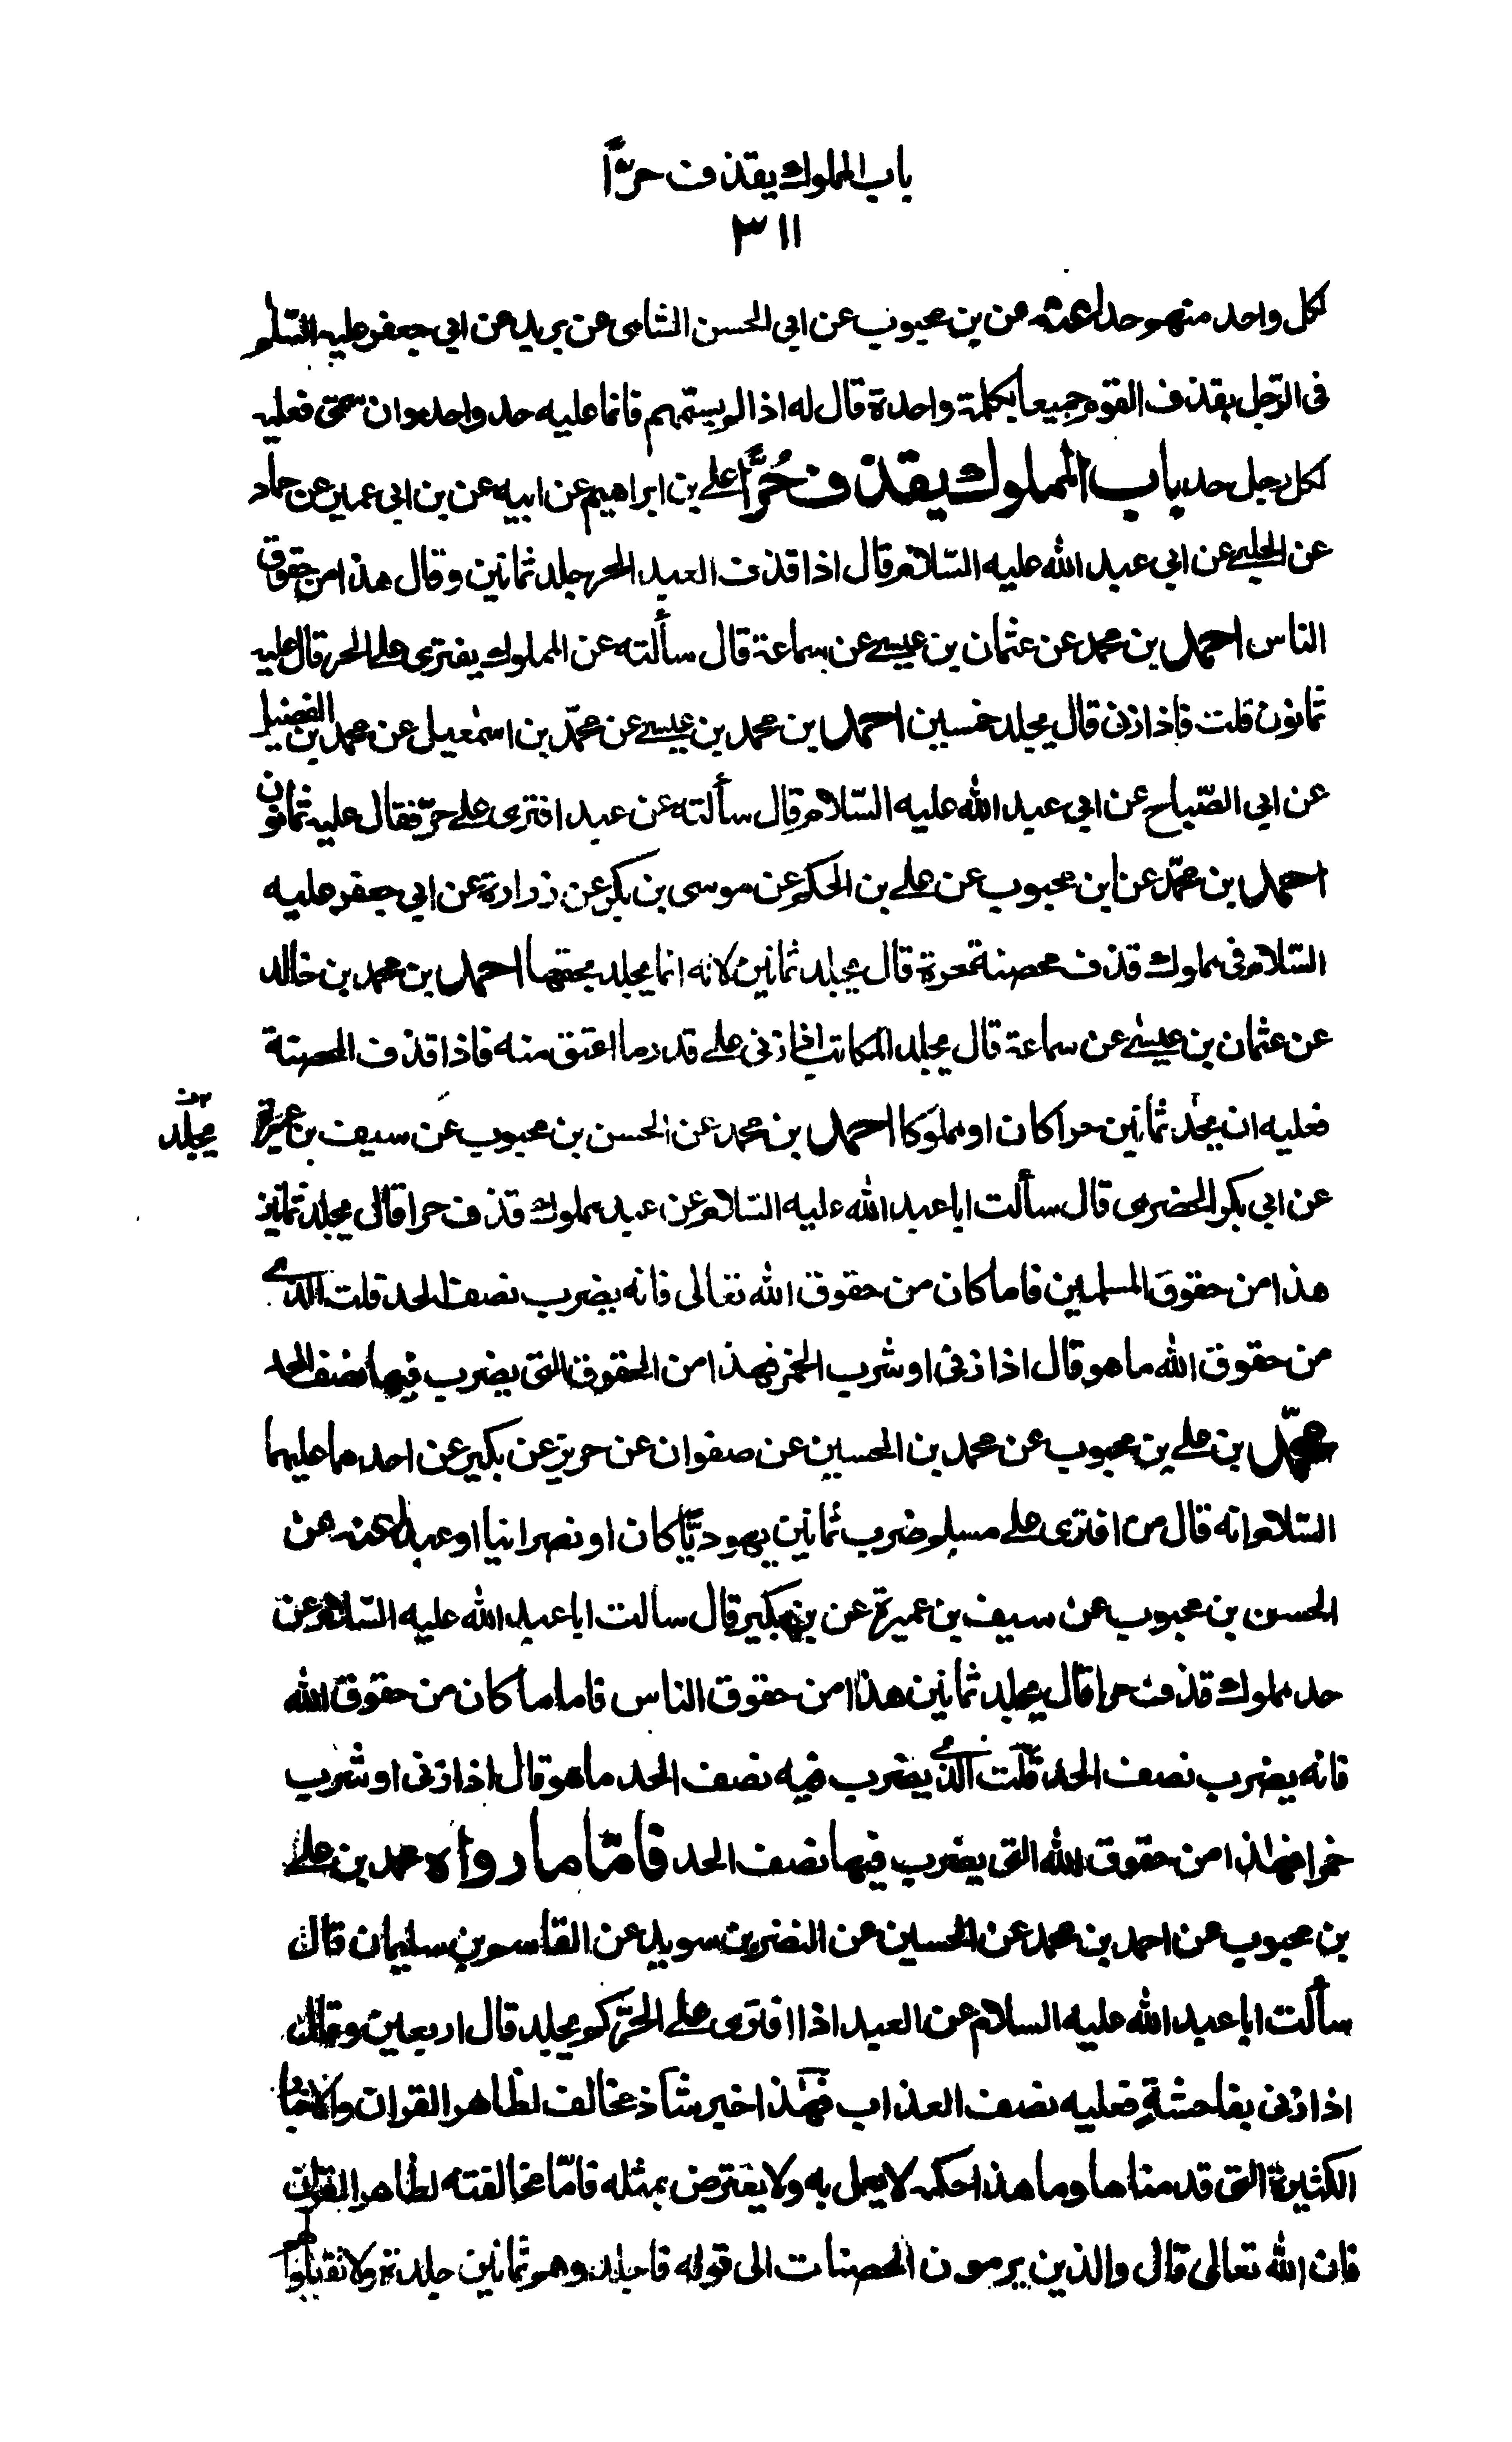 باب المملوك يقذف حرًّا
٣١١
لكل واحد منهم حدا عنه عن بن محبوب عن ابى الحسن الشامى عن بريد عن ابى جعفر عليه السّلم
فى الرّجل يقذف القوم جميعا بكلمة واحدة قال له اذا لم يسمّهم فانما عليه حد واحد وان سمّى فعليه
لكل رجل حد باب المملوك يقذف حُرًّا على بن ابراهيم عن ابيه عن بن ابى عمير عن حماد
عن الحلبى عن ابى عبد الله عليه السّلام قال اذا قذف العبد الحر جلد ثمانين وقال هذا من حقوق
الناس احمد بن محمد عن عثمان بن عيسى عن سماعة قال سألته عن المملوك يفترى على الحر قال عليه
ثمانون قلت فاذا زنى قال يجلد خمسين احمد بن محمد بن عيسى عن محمّد بن اسمٰعيل عن محمد بن الفضيل
عن ابى الصّباح عن ابى عبد الله عليه السّلام قال سألته عن عبد افترى على حرّ فقال عليه ثمانون
احمد بن محمّد عن ابن محبوب عن على بن الحكم عن موسى بن بكر عن زرارة عن ابى جعفر عليه
السّلام فى مملوك قذف محصنة حرة قال يجلد ثمانين لانه انما يجلد بحقها احمد بن محمد بن خالد
عن عثمان بن عيسى عن سماعة قال يجلد المكاتب اذا زنى على قدر ما اعتق منه فاذا قذف المحصنة
فعليه ان يجلد ثمانين حرا كان او مملوكا احمد بن محمد عن الحسن بن محبوب عن سيف بن عميرة
يجلد
عن ابى بكر الحضرمى قال سألت ابا عبد الله عليه السّلام عن عبد مملوك قذف حرا قال يجلد ثمانين
هذا من حقوق المسلمين فاما ما كان من حقوق الله تعالى فانه يضرب نصف الحد قلت الذى
من حقوق الله ما هو قال اذا زنى او شرب الخمر فهذا من الحقوق التى يضرب فيها نصف الحد
محمّد بن على بن محبوب عن محمد بن الحسين عن صفوان عن حريز عن بكير عن احدهما عليهما
السّلام انه قال من افترى على مسلم ضرب ثمانين يهوديًّا كان او نصرانيا او عبدا عنه عن
الحسن بن محبوب عن سيف بن عميرة عن بن بكير قال سالت ابا عبد الله عليه السّلام عن
حد مملوك قذف حرا قال يجلد ثمانين هذا من حقوق الناس فاما ما كان من حقوق الله
فانه يضرب نصف الحد قلت الذى يضرب فيه نصف الحد ما هو قال اذا زنى او شرب
خمرا فهذا من حقوق الله التى يضرب فيها نصف الحد فامّا ما رواه محمد بن على
بن محبوب عن احمد بن محمد عن الحسين عن النضر بن سويد عن القاسم بن سليمان قال
سألت ابا عبد الله عليه السلام عن العبد اذا افترى على الحرّ كم يجلد قال اربعين وقال
اذا زنى بفاحشةٍ فعليه نصف العذاب فهذا خبر شاذ مخالف لظاهر القران والاخبار
الكثيرة التى قدمناها وما هذا حكمه لا يعمل به ولا يعترض بمثله فامّا مخالفته لظاهر القران
فان الله تعالى قال والذين يرمون المحصنات الى قوله فاجلدوهم ثمانين جلدة ولا تقبلوا